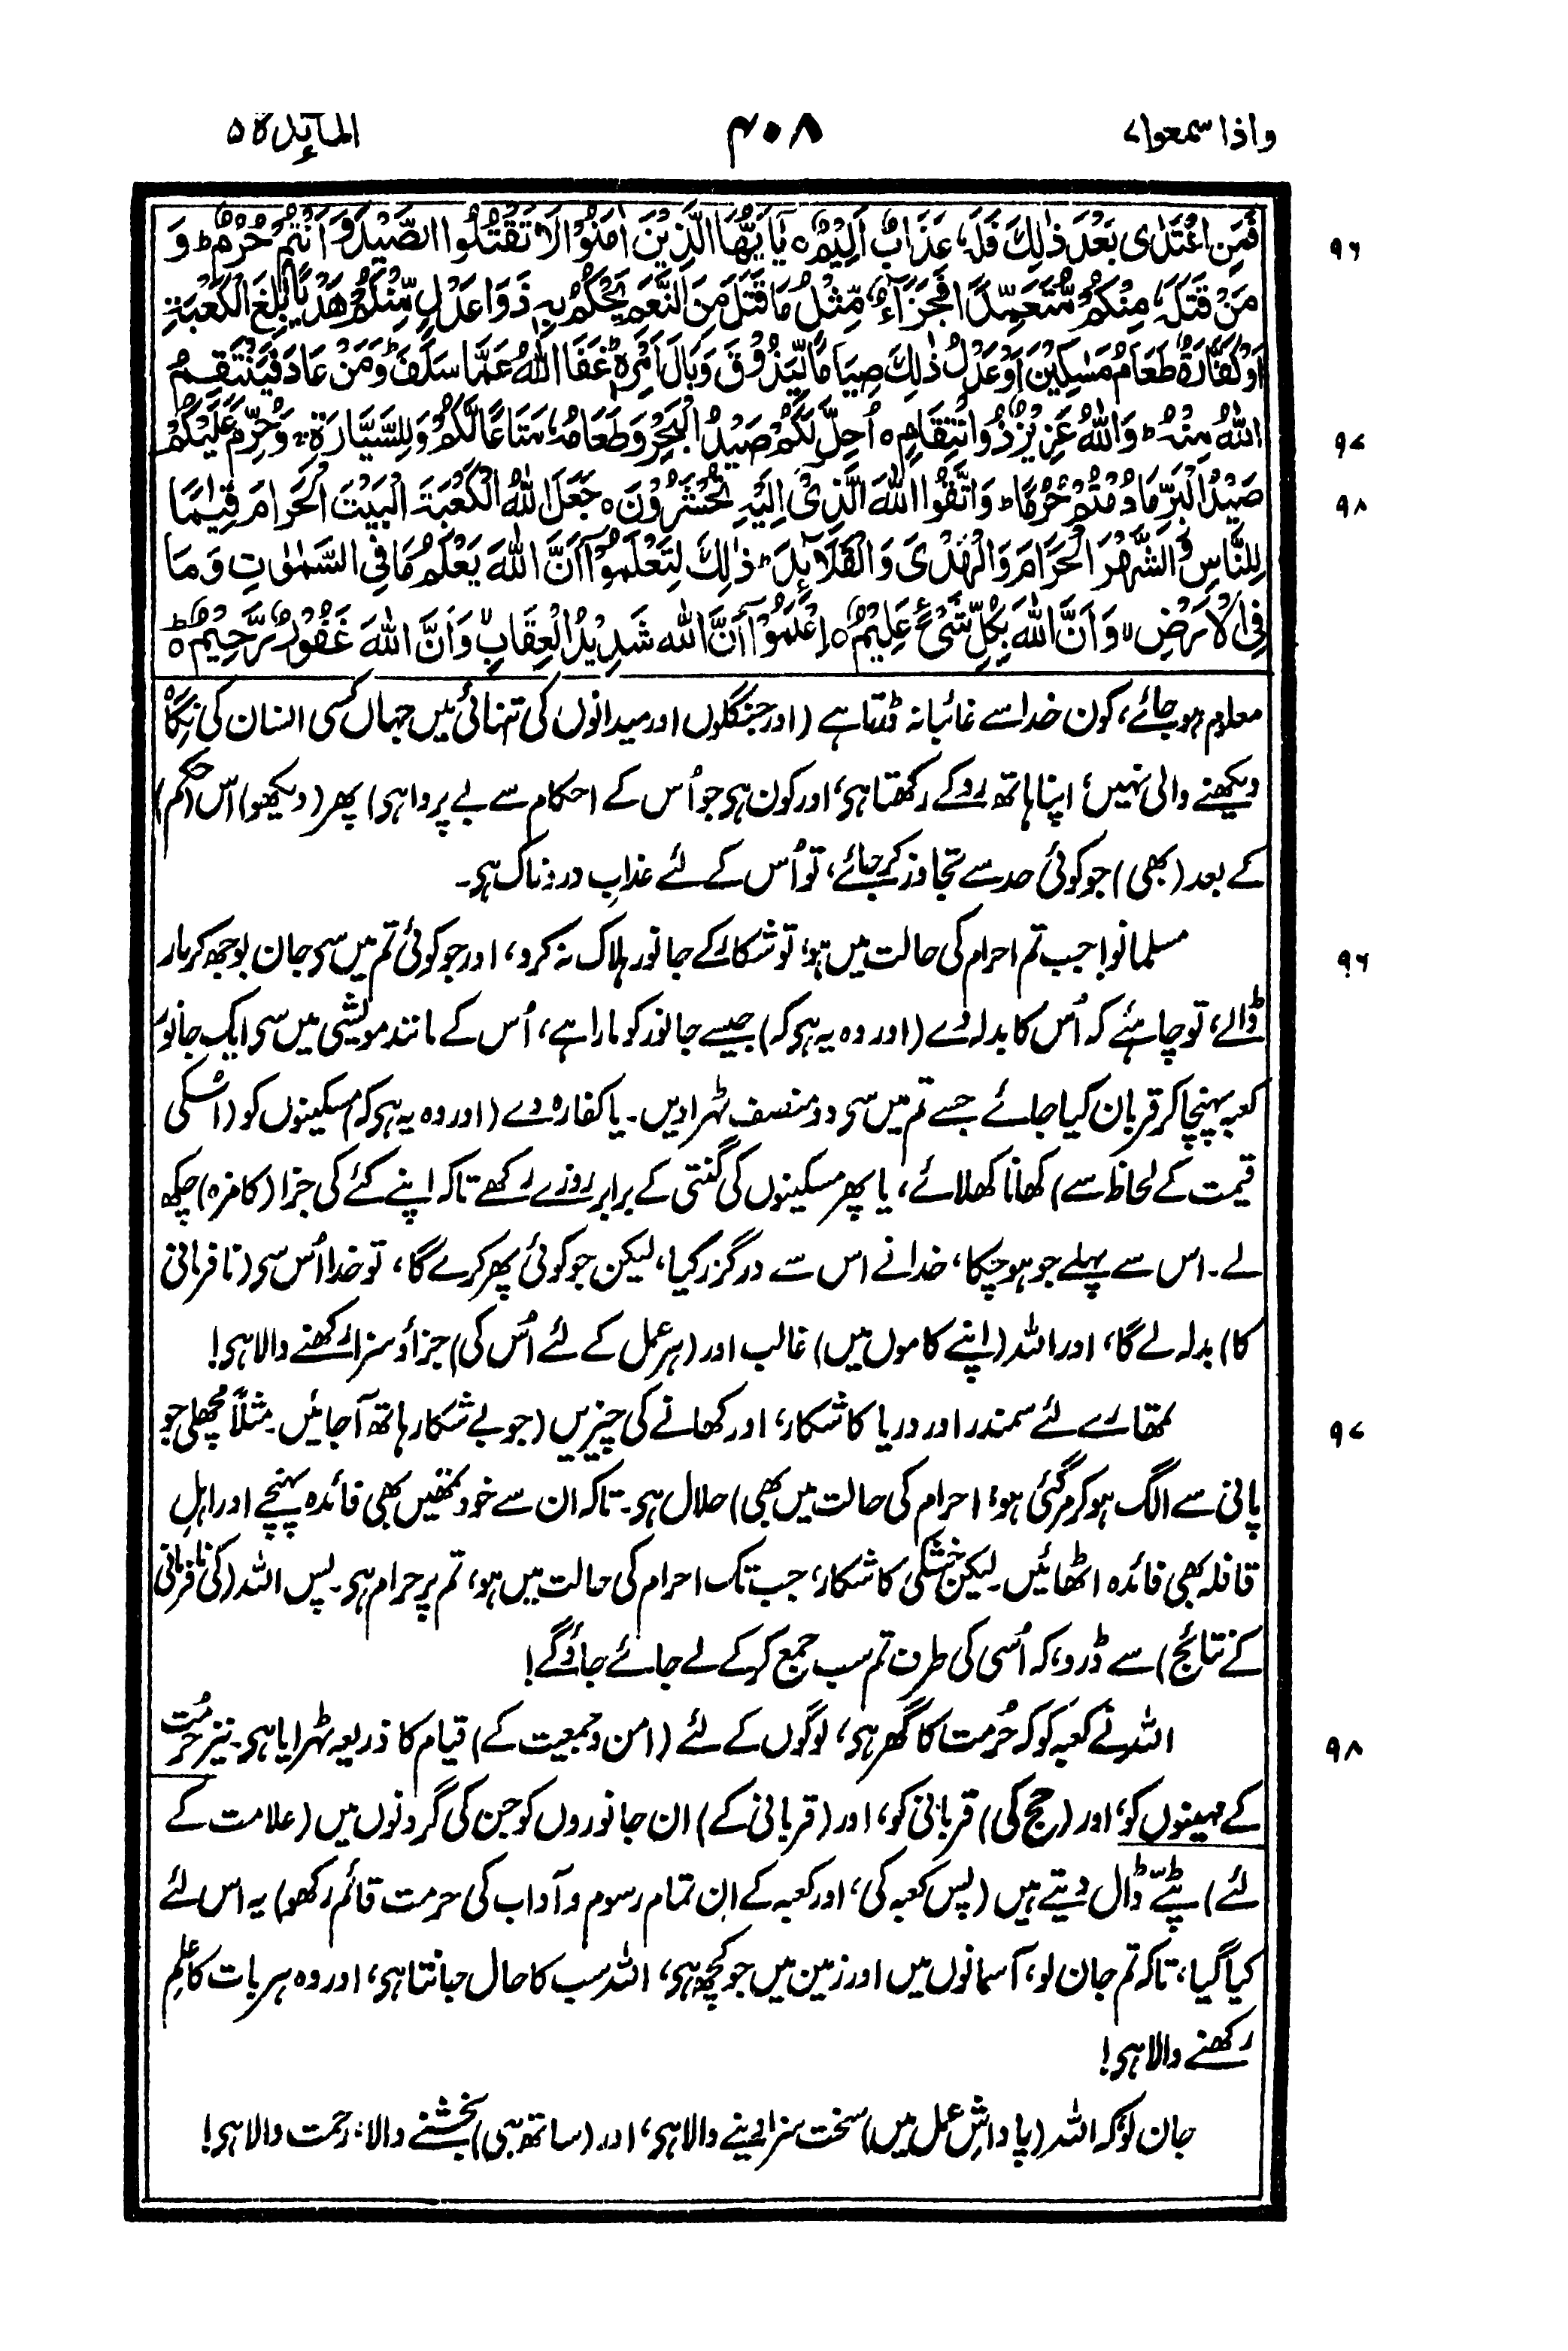 واذا سمعوا ۷
۴۰۸
المآئدۃ ۵
فَمَنِ اعْتَدٰى بَعْدَ ذٰلِكَ فَلَهٗ عَذَابٌ اَلِيْمٌ ٥ يٰٓاَيُّهَا الَّذِيْنَ اٰمَنُوْا لَا تَقْتُلُوا الصَّيْدَ وَاَنْتُمْ حُرُمٌ ؕ وَ
۹۶
مَنْ قَتَلَهٗ مِنْكُمْ مُّتَعَمِّدًا فَجَزَآءٌ مِّثْلُ مَا قَتَلَ مِنَ النَّعَمِ يَحْكُمُ بِهٖ ذَوَا عَدْلٍ مِّنْكُمْ هَدْيًۢا بٰلِغَ الْكَعْبَةِ
اَوْ كَفَّارَةٌ طَعَامُ مَسٰكِيْنَ اَوْ عَدْلُ ذٰلِكَ صِيَامًا لِّيَذُوْقَ وَبَالَ اَمْرِهٖ ؕ عَفَا اللّٰهُ عَمَّا سَلَفَ ؕ وَمَنْ عَادَ فَيَنْتَقِمُ
اللّٰهُ مِنْهُ ؕ وَاللّٰهُ عَزِيْزٌ ذُو انْتِقَامٍ ٥ اُحِلَّ لَكُمْ صَيْدُ الْبَحْرِ وَطَعَامُهٗ مَتَاعًا لَّكُمْ وَلِلسَّيَّارَةِ ۚ وَحُرِّمَ عَلَيْكُمْ
۹۷
صَيْدُ الْبَرِّ مَا دُمْتُمْ حُرُمًا ؕ وَاتَّقُوا اللّٰهَ الَّذِيْٓ اِلَيْهِ تُحْشَرُوْنَ ٥ جَعَلَ اللّٰهُ الْكَعْبَةَ الْبَيْتَ الْحَرَامَ قِيٰمًا
۹۸
لِّلنَّاسِ وَالشَّهْرَ الْحَرَامَ وَالْهَدْيَ وَالْقَلَآئِدَ ؕ ذٰلِكَ لِتَعْلَمُوْٓا اَنَّ اللّٰهَ يَعْلَمُ مَا فِي السَّمٰوٰتِ وَمَا
فِي الْاَرْضِ ۙ وَاَنَّ اللّٰهَ بِكُلِّ شَيْءٍ عَلِيْمٌ ٥ اِعْلَمُوْٓا اَنَّ اللّٰهَ شَدِيْدُ الْعِقَابِ وَاَنَّ اللّٰهَ غَفُوْرٌ رَّحِيْمٌ ٥ؕ
معلوم ہو جائے، کون خدا سے غائبانہ ڈرتا ہے (اور جنگلوں اور میدانوں کی تنہائی میں جہاں کسی انسان کی نگاہ
دیکھنے والی نہیں، اپنا ہاتھ روکے رکھتا ہی، اور کون ہی جو اُس کے احکام سے بے پروا ہی) پھر (دیکھو) اس (حکم)
کے بعد (بھی) جو کوئی حد سے تجاوز کر جائے، تو اُس کے لئے عذاب دردناک ہی۔
مسلمانو! جب تم احرام کی حالت میں ہو، تو شکار کے جانور ہلاک نہ کرو، اور جو کوئی تم میں سی جان بوجھ کر مار
۹۶
ڈالے، تو چاہئے کہ اُس کا بدلہ دے (اور وہ یہ ہی کہ) جیسے جانور کو مارا ہے، اُس کے مانند مویشی میں سی ایک جانور
کعبہ پہنچا کر قربان کیا جائے جسے تم میں سی دو منصف ٹھرا دیں۔ یا کفارہ دے (اور وہ یہ ہی کہ) مسکینوں کو (اسکی
قیمت کے لحاظ سے) کھانا کھلائے، یا پھر مسکینوں کی گنتی کے برابر روزے رکھے تاکہ اپنے کئے کی جزا (کا مزہ) چکھ
لے۔ اس سے پہلے جو ہو چکا، خدا نے اس سے درگزر کیا، لیکن جو کوئی پھر کرے گا، تو خدا اُس سی (نافرمانی
کا) بدلہ لے گا، اور اللہ (اپنے کاموں میں) غالب اور (ہر عمل کے لئے اُس کی) جزاؤ سزا رکھنے والا ہی!
تمھارے لئے سمندر اور دریا کا شکار، اور کھانے کی چیزیں (جو بے شکار ہاتھ آ جائیں۔ مثلاً مچھلی جو
۹۷
پانی سے الگ ہو کر مر گئی ہو، احرام کی حالت میں بھی) حلال ہی۔ تاکہ ان سے خود تمھیں بھی فائدہ پہنچے اور اہلِ
قافلہ بھی فائدہ اٹھائیں۔ لیکن خشکی کا شکار، جب تک احرام کی حالت میں ہو، تم پر حرام ہی۔ پس اللہ (کی نافرمانی
کے نتائج) سے ڈرو، کہ اُسی کی طرف تم سب جمع کر کے لے جائے جاؤ گے!
اللہ نے کعبہ کو کہ حُرمت کا گھر ہی، لوگوں کے لئے (امن و جمعیت کے) قیام کا ذریعہ ٹھرایا ہی۔ نیز حُرمت
۹۸
کے مہینوں کو، اور (حج کی) قربانی کو، اور (قربانی کے) ان جانوروں کو جن کی گردنوں میں (علامت کے
لئے) پٹے ڈال دیتے ہیں (پس کعبہ کی، اور کعبہ کے ان تمام رسوم و آداب کی حرمت قائم رکھو) یہ اس لئے
کیا گیا، تاکہ تم جان لو، آسمانوں میں اور زمین میں جو کچھ ہی، اللہ سب کا حال جانتا ہی، اور وہ ہر بات کا علم
رکھنے والا ہی!
جان لو، کہ اللہ (پاداشِ عمل میں) سخت سزا دینے والا ہی، اور (ساتھ ہی) بخشنے والا، رحمت والا ہی!